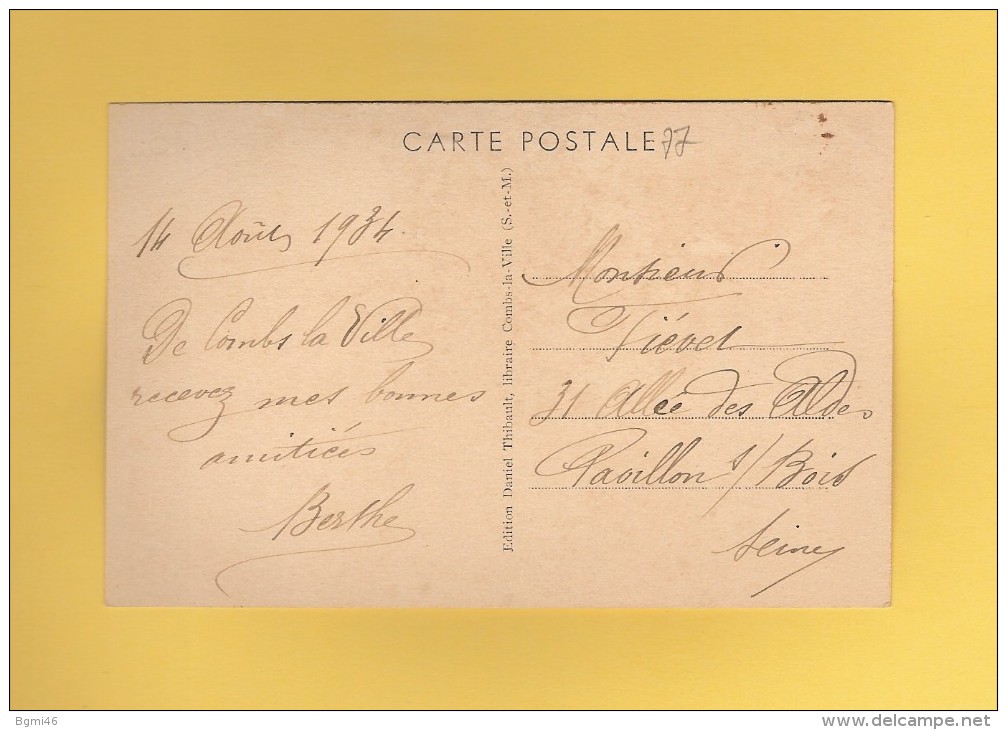 CARTE POSTALE 77
14 Août 1934.
De Combs la Ville
recevez mes bonnes
amitiées
Berthe
Edition Daniel Thibault, libraire Combs-la-Ville (S.-et-M.)
Monsieur
31 Allée des
Pavillon s/ Bois
Seine
Bgmi46
www.delcampe.net